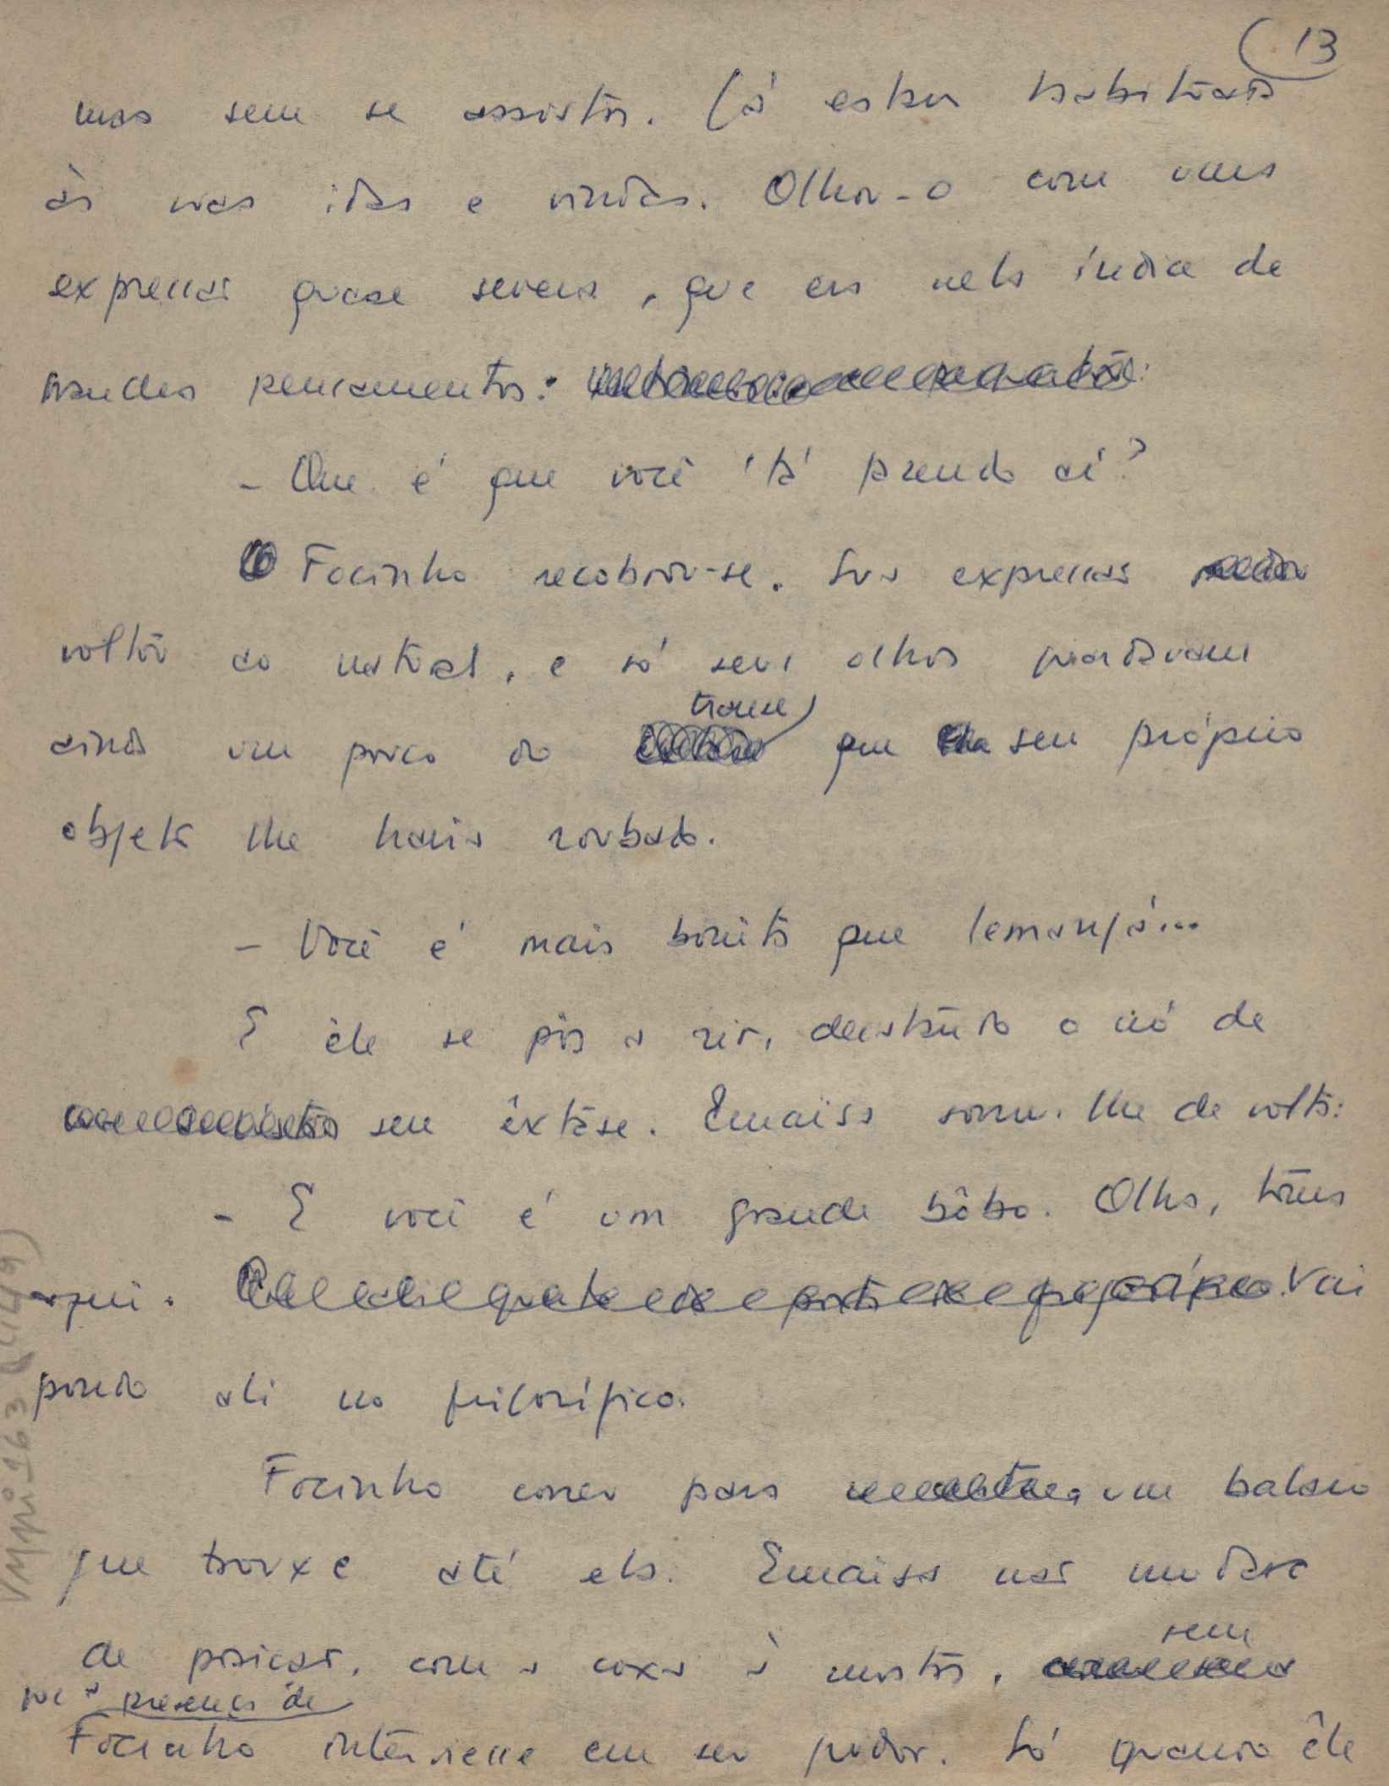 13
mas sem se assustar. Já estava habituada
às suas idas e vindas. Olhou-o com uma
expressão quase severa, que era nela índice de
grandes pensamentos:
- Que é que você 'tá fazendo aí?
Focinho recobrou-se. Sua expressão
voltou ao natural, e só seus olhos guardavam
ainda um pouco do transe que seu próprio
objeto lhe havia roubado.
- Você é mais bonita que Iemanjá...
E êle se pôs a rir, desatando o nó de
seu êxtase. Emaísa sorriu-lhe de volta:
- E você é um grande bôbo. Olha, toma
aqui. Vai
pondo ali no frigorífico.
Focinho correu para um balaio
que trouxe até ela. Emaísa não mudara
de posição, com a coxa à mostra, sem
que a presença de
Focinho interviesse em seu pudor. Só quando êle
VMpi 163